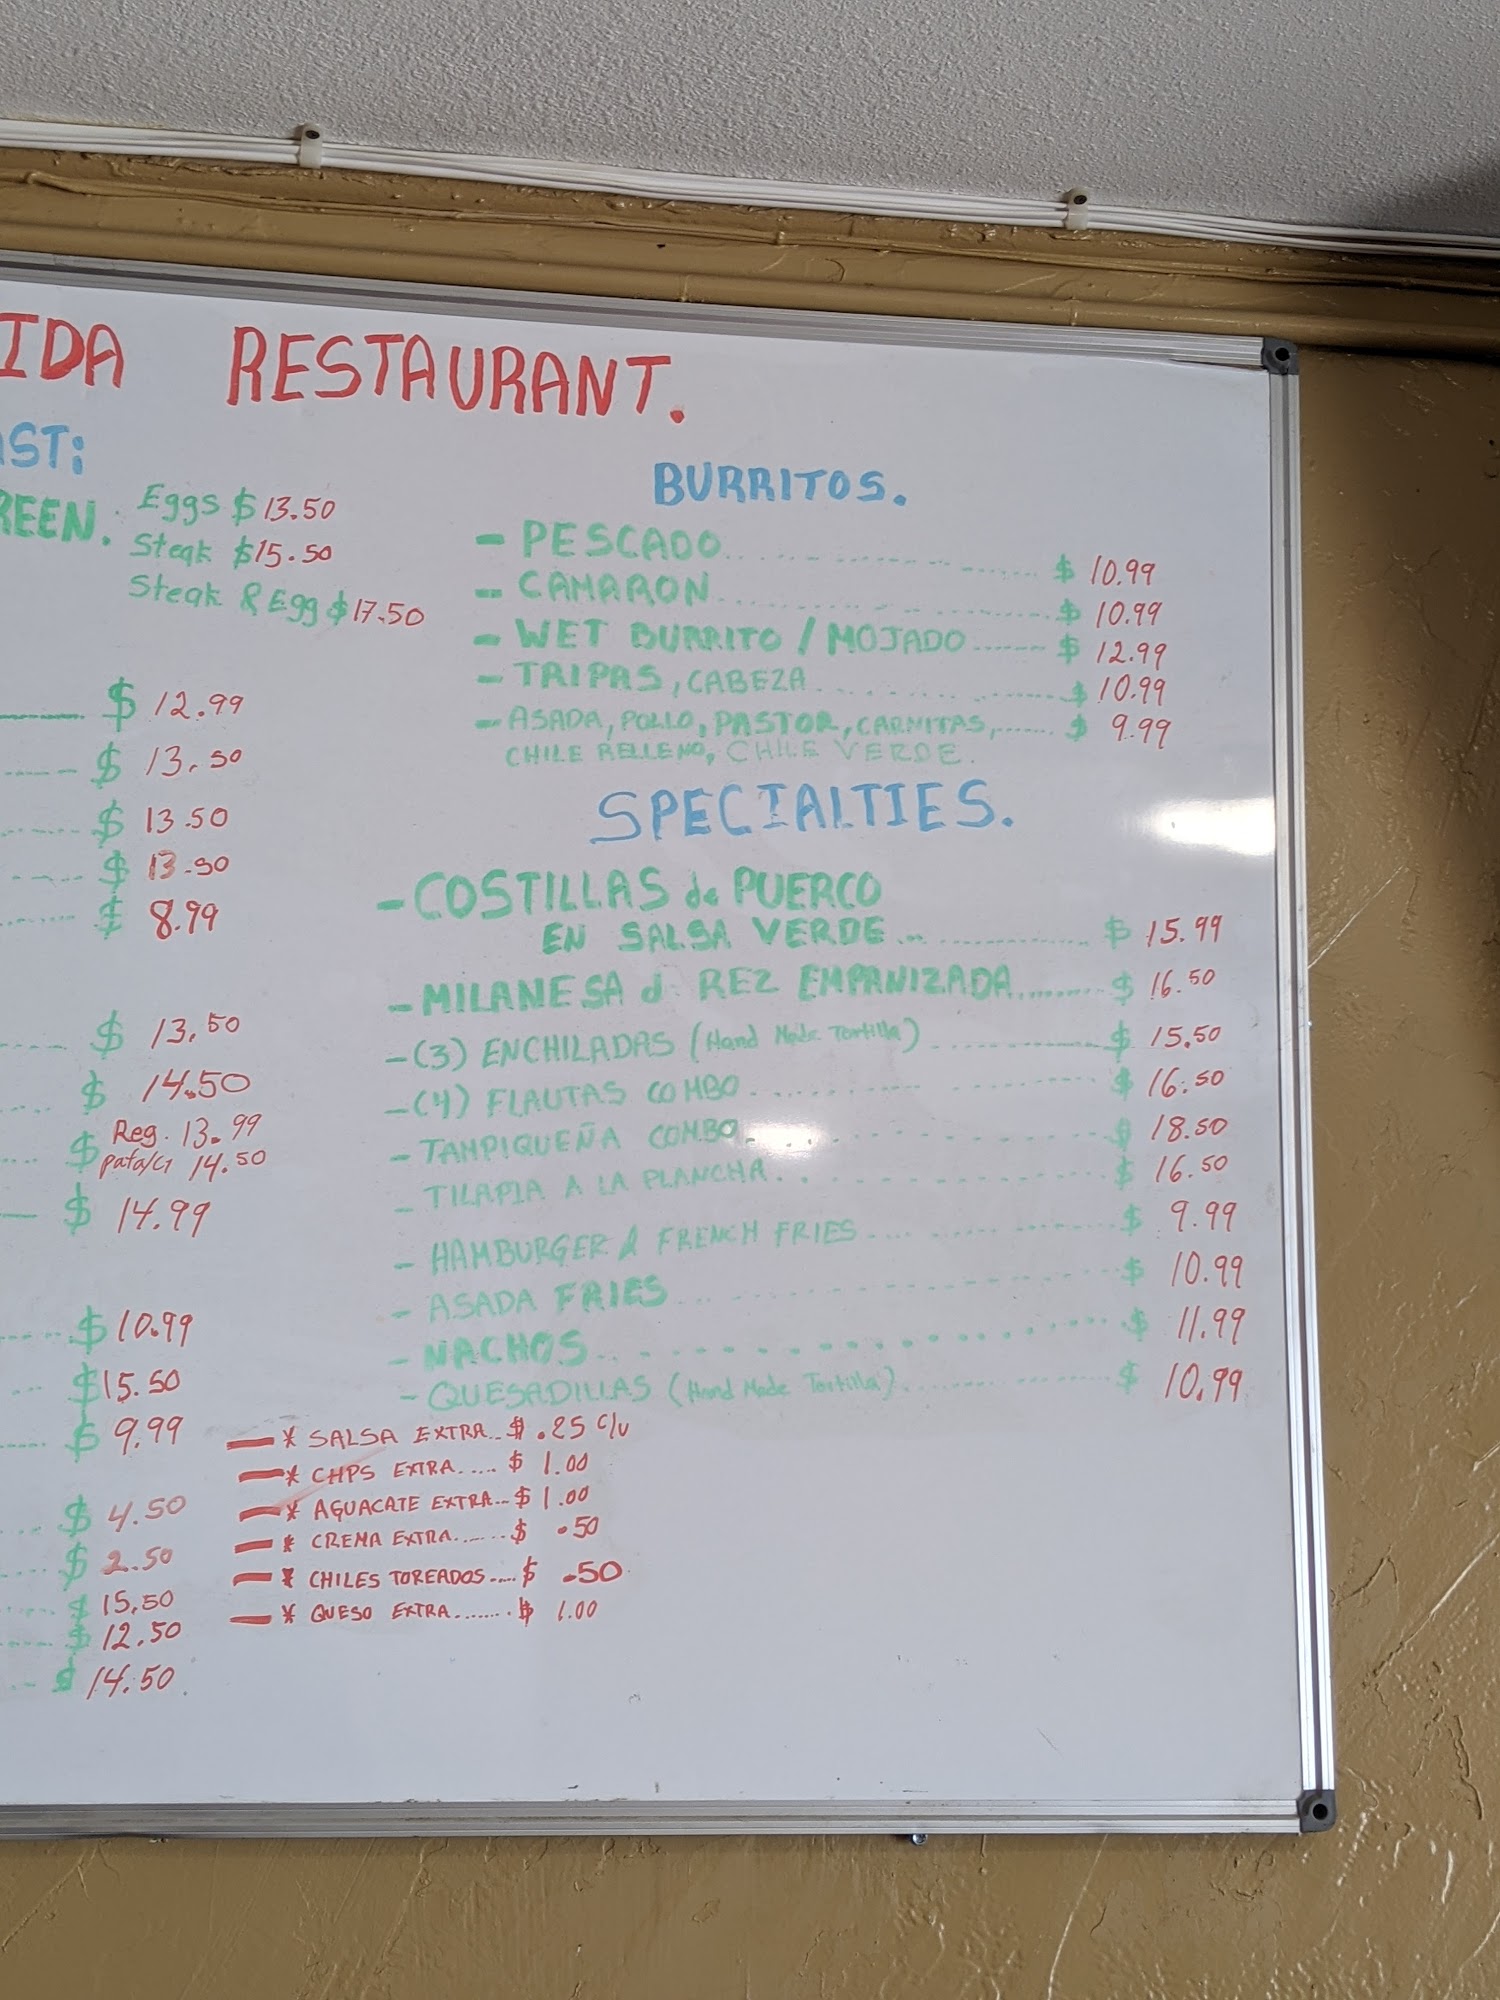 IDA RESTAURANT.
AST:
REEN. Eggs $13.50
Steak $15.50
Steak & Egg $17.50
$ 12.99
$ 13.50
$ 13.50
$ 13.50
$ 8.99
$ 13.50
$ 14.50
$ Reg. 13.99
pata/ 14.50
$ 14.99
$ 10.99
$ 15.50
$ 9.99
$ 4.50
$ 2.50
$ 15.50
$ 12.50
$ 14.50
BURRITOS.
- PESCADO $ 10.99
- CAMARON $ 10.99
- WET BURRITO / MOJADO $ 12.99
- TRIPAS, CABEZA $ 10.99
- ASADA, POLLO, PASTOR, CARNITAS, $ 9.99
CHILE RELLENO, CHILE VERDE.
SPECIALTIES.
- COSTILLAS de PUERCO
EN SALSA VERDE $ 15.99
- MILANESA d REZ EMPANIZADA $ 16.50
- (3) ENCHILADAS (Hand Made Tortilla) $ 15.50
- (4) FLAUTAS COMBO $ 16.50
- TAMPIQUEÑA COMBO $ 18.50
- TILAPIA A LA PLANCHA $ 16.50
- HAMBURGER & FRENCH FRIES $ 9.99
- ASADA FRIES $ 10.99
- NACHOS $ 11.99
- QUESADILLAS (Hand Made Tortilla) $ 10.99
— * SALSA EXTRA.. $ .25 c/u
— * CHPS EXTRA..... $ 1.00
— * AGUACATE EXTRA... $ 1.00
— * CREMA EXTRA....... $ .50
— * CHILES TOREADOS.... $ .50
— * QUESO EXTRA........ $ 1.00